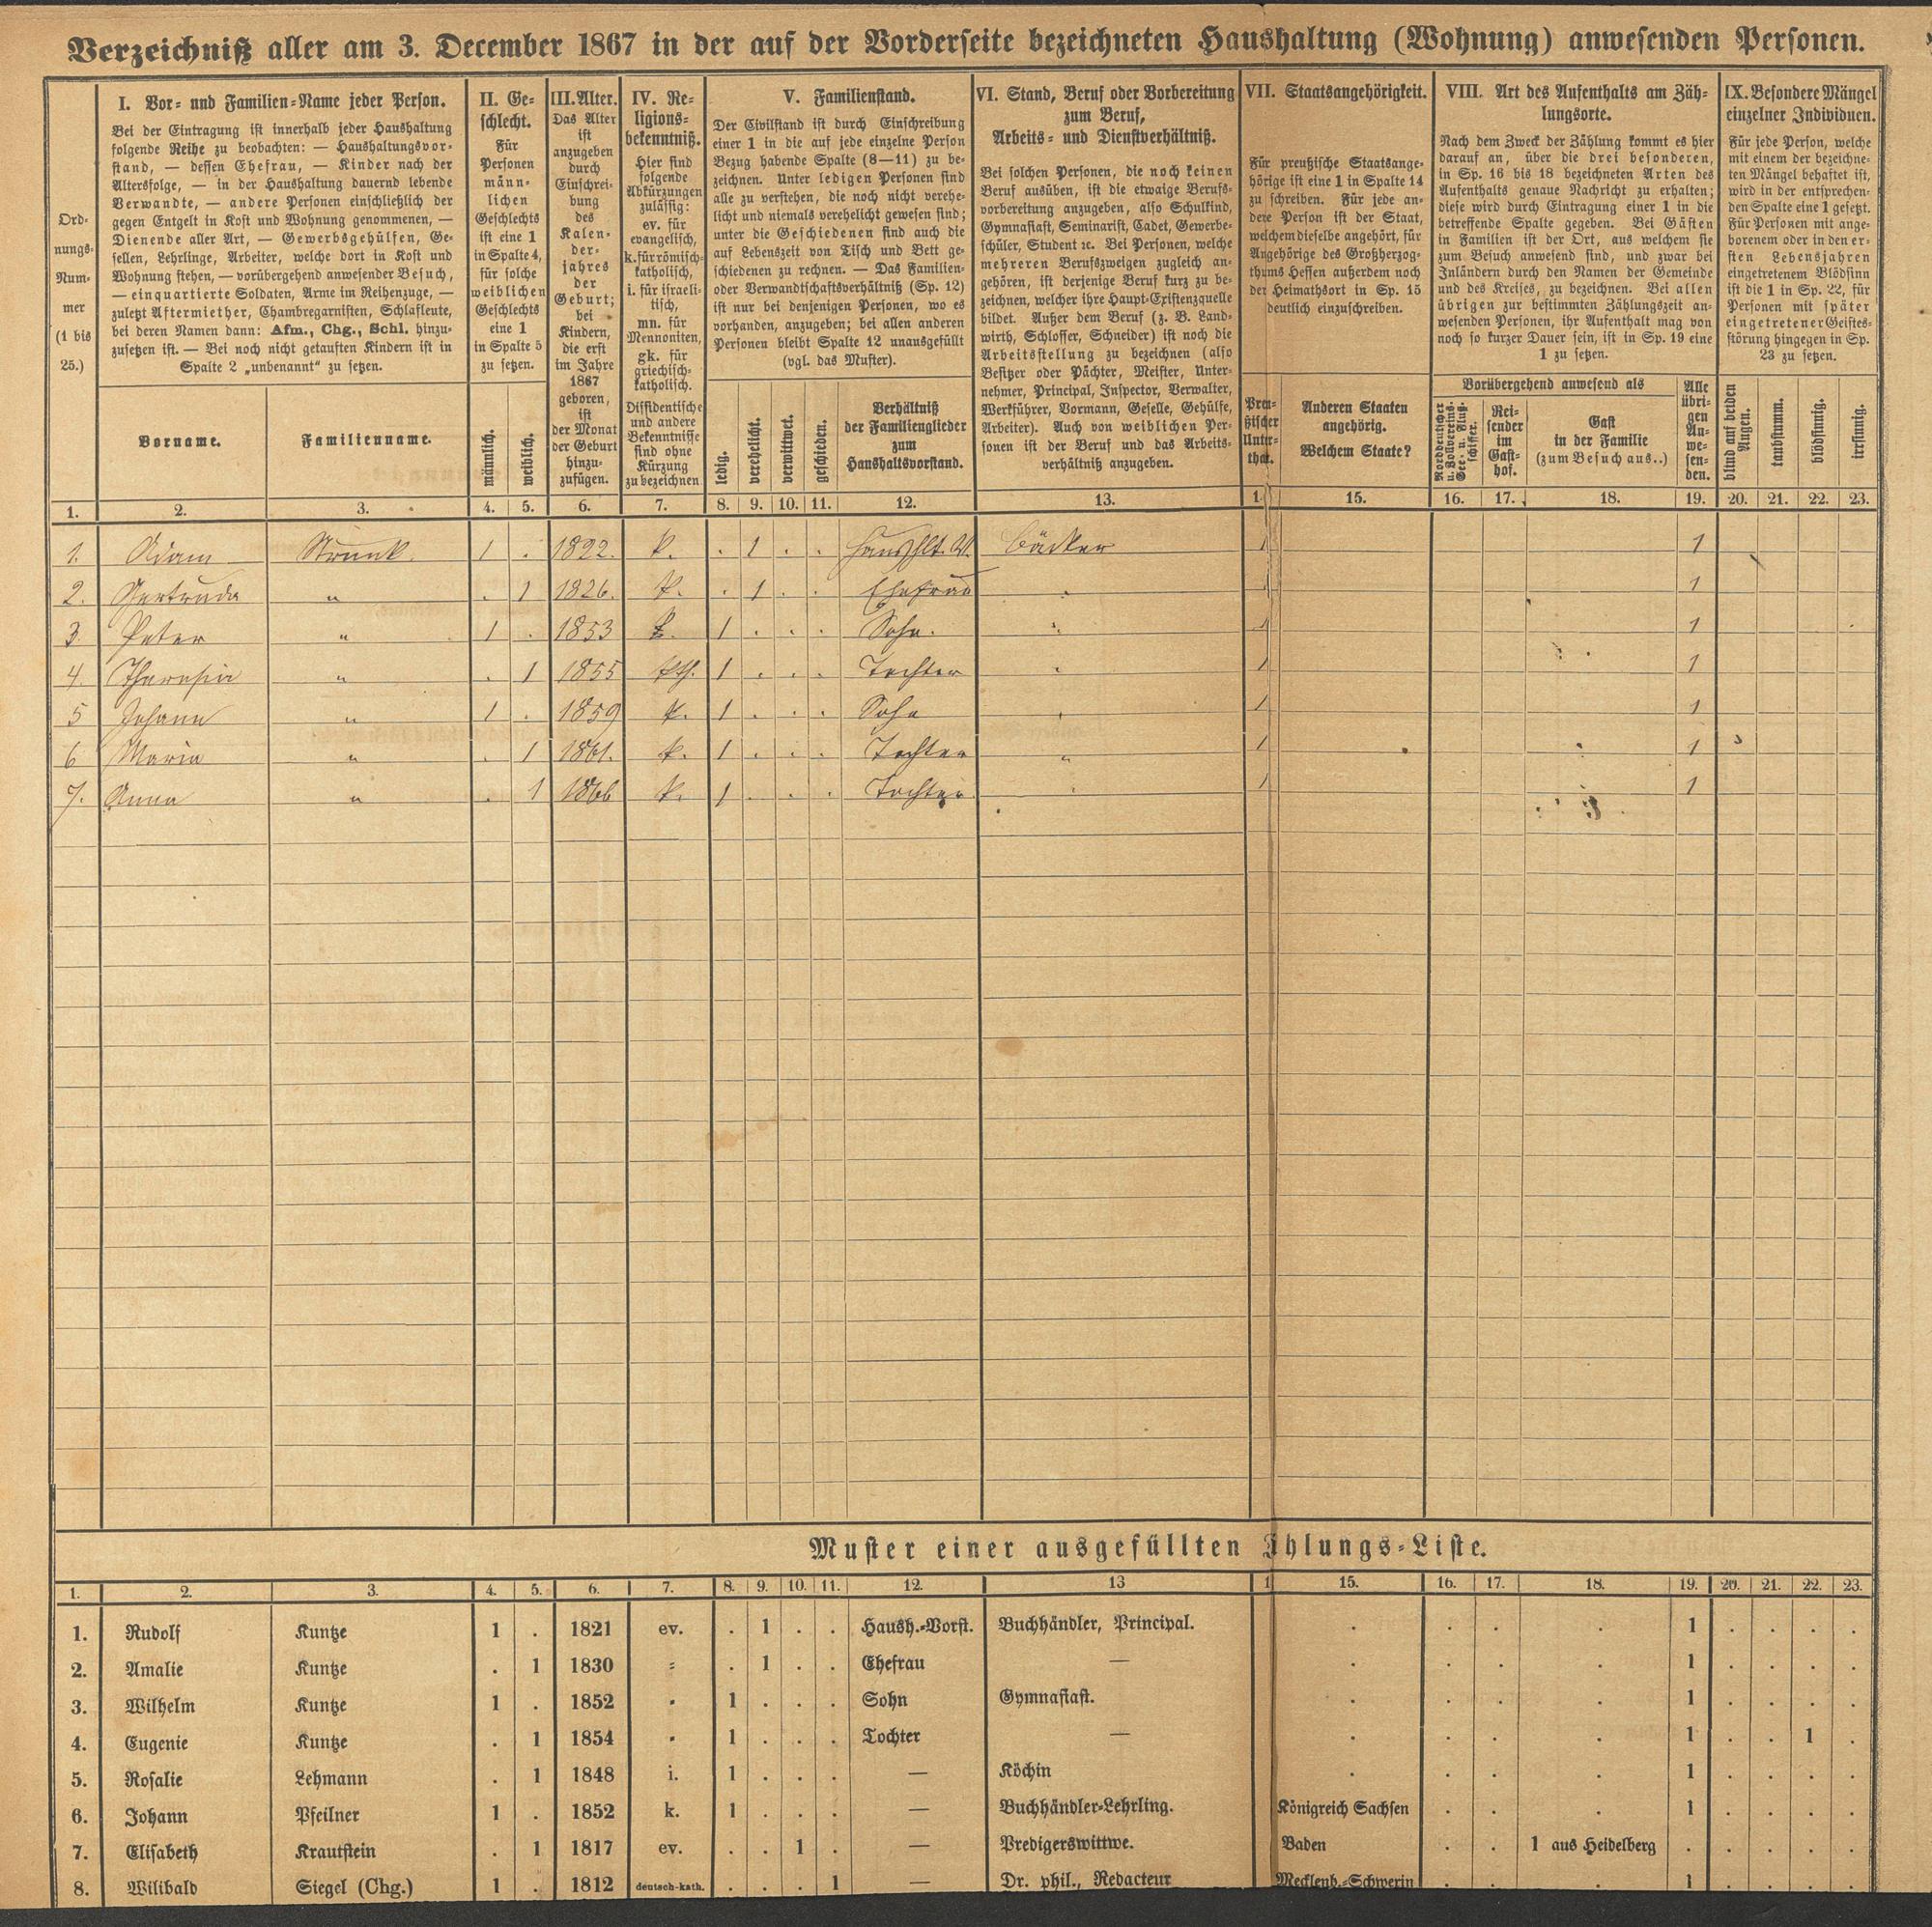 Verzeichniß aller am 3. December 1867 in der auf der Vorderseite bezeichneten Haushaltung (Wohnung) anwesenden Personen.
Ord-
nungs-
Num-
mer
(1 bis
25.)
I. Vor- und Familien-Name jeder Person.
Bei der Eintragung ist innerhalb jeder Haushaltung
folgende Reihe zu beobachten: — Haushaltungsvor-
stand, — dessen Ehefrau, — Kinder nach der
Altersfolge, — in der Haushaltung dauernd lebende
Verwandte, — andere Personen einschließlich der
gegen Entgelt in Kost und Wohnung genommenen, —
Dienende aller Art, — Gewerbsgehülfen, Ge-
sellen, Lehrlinge, Arbeiter, welche dort in Kost und
Wohnung stehen, — vorübergehend anwesender Besuch,
— einquartierte Soldaten, Arme im Reihenzuge, —
zuletzt Aftermiether, Chambregarnisten, Schlafleute,
bei deren Namen dann: Afm., Chg., Schl. hinzu-
zusetzen ist. — Bei noch nicht getauften Kindern ist in
Spalte 2 „unbenannt“ zu setzen.
Vorname.
Familienname.
II. Ge-
schlecht.
Für
Personen
männ-
lichen
Geschlechts
ist eine 1
in Spalte 4,
für solche
weiblichen
Geschlechts
eine 1
in Spalte 5
zu setzen.
männlich.
weiblich.
III. Alter.
Das Alter
ist
anzugeben
durch
Einschrei-
bung
des
Kalen-
der-
jahres
der
Geburt;
bei
Kindern,
die erst
im Jahre
1867
geboren,
ist
der Monat
der Geburt
hinzu-
zufügen.
IV. Re-
ligions-
bekenntniß.
Hier sind
folgende
Abkürzungen
zulässig:
ev. für
evangelisch,
k. für römisch-
katholisch,
i. für israeli-
tisch,
mn. für
Mennoniten,
gk. für
griechisch-
katholisch.
Dissidentische
und andere
Bekenntnisse
sind ohne
Kürzung
zu bezeichnen
V. Familienstand.
Der Civilstand ist durch Einschreibung
einer 1 in die auf jede einzelne Person
Bezug habende Spalte (8—11) zu be-
zeichnen. Unter ledigen Personen sind
alle zu verstehen, die noch nicht verehe-
licht und niemals verehelicht gewesen sind;
unter die Geschiedenen sind auch die
auf Lebenszeit von Tisch und Bett ge-
schiedenen zu rechnen. — Das Familien-
oder Verwandtschaftsverhältniß (Sp. 12)
ist nur bei denjenigen Personen, wo es
vorhanden, anzugeben; bei allen anderen
Personen bleibt Spalte 12 unausgefüllt
(vgl. das Muster).
ledig.
verehelicht.
verwittwet.
geschieden.
Verhältniß
der Familienglieder
zum
Haushaltsvorstand.
VI. Stand, Beruf oder Vorbereitung
zum Beruf,
Arbeits- und Dienstverhältniß.
Bei solchen Personen, die noch keinen
Beruf ausüben, ist die etwaige Berufs-
vorbereitung anzugeben, also Schulkind,
Gymnasiast, Seminarist, Cadet, Gewerbe-
schüler, Student ꝛc. Bei Personen, welche
mehreren Berufszweigen zugleich an-
gehören, ist derjenige Beruf kurz zu be-
zeichnen, welcher ihre Haupt-Existenzquelle
bildet. Außer dem Beruf (z. B. Land-
wirth, Schlosser, Schneider) ist noch die
Arbeitsstellung zu bezeichnen (also
Besitzer oder Pächter, Meister, Unter-
nehmer, Principal, Inspector, Verwalter,
Werkführer, Vormann, Geselle, Gehülfe,
Arbeiter). Auch von weiblichen Per-
sonen ist der Beruf und das Arbeits-
verhältniß anzugeben.
VII. Staatsangehörigkeit.
Für preußische Staatsange-
hörige ist eine 1 in Spalte 14
zu schreiben. Für jede an-
dere Person ist der Staat,
welchem dieselbe angehört, für
Angehörige des Großherzog-
thums Hessen außerdem noch
der Heimathsort in Sp. 15
deutlich einzuschreiben.
Preu-
ßischer
Unter-
than.
Anderen Staaten
angehörig.
Welchem Staate?
VIII. Art des Aufenthalts am Zäh-
lungsorte.
Nach dem Zweck der Zählung kommt es hier
darauf an, über die drei besonderen,
in Sp. 16 bis 18 bezeichneten Arten des
Aufenthalts genaue Nachricht zu erhalten;
diese wird durch Eintragung einer 1 in die
betreffende Spalte gegeben. Bei Gästen
in Familien ist der Ort, aus welchem sie
zum Besuch anwesend sind, und zwar bei
Inländern durch den Namen der Gemeinde
und des Kreises, zu bezeichnen. Bei allen
übrigen zur bestimmten Zählungszeit an-
wesenden Personen, ihr Aufenthalt mag von
noch so kurzer Dauer sein, ist in Sp. 19 eine
1 zu setzen.
Vorübergehend anwesend als
Norddeutscher
u. Zollvereins-
See- u. Fluß-
schiffer.
Rei-
sender
im
Gast-
hof.
Gast
in der Familie
(zum Besuch aus..)
Alle
übri-
gen
An-
we-
sen-
den.
IX. Besondere Mängel
einzelner Individuen.
Für jede Person, welche
mit einem der bezeichne-
ten Mängel behaftet ist,
wird in der entsprechen-
den Spalte eine 1 gesetzt.
Für Personen mit ange-
borenem oder in den er-
sten Lebensjahren
eingetretenem Blödsinn
ist die 1 in Sp. 22, für
Personen mit später
eingetretener Geistes-
störung hingegen in Sp.
23 zu setzen.
blind auf beiden
Augen.
taubstumm.
blödsinnig.
irrsinnig.
1. 2. 3. 4. 5. 6. 7. 8. 9. 10. 11. 12. 13. 1 15. 16. 17. 18. 19. 20. 21. 22. 23.
1. Adam Strunk. 1 . 1822. k. . 1 . . Haushlt. V. Bäcker 1 1
2. Gertruda " . 1 1826. k. . 1 . . Ehefrau 1 1
3 Peter " 1 . 1853 k. 1 . . . Sohn. 1 1
4. Theresia " . 1 1855 kth. 1 . . . Tochter 1 1
5 Johann " 1 . 1859 k. 1 . . . Sohn 1 1
6 Maria " . 1 1861. k. 1 . . . Tochter " 1 1
7. Anna " . 1 1866 k. 1 . . . Tochter 1 1
Muster einer ausgefüllten Zählungs-Liste.
1. 2. 3. 4. 5. 6. 7. 8. 9. 10. 11. 12. 13 1 15. 16. 17. 18. 19. 20. 21. 22. 23.
1. Rudolf Kuntze 1 . 1821 ev. . 1 . . Haush.-Vorst. Buchhändler, Principal. . . . . 1 . . . .
2. Amalie Kuntze . 1 1830 " . 1 . . Ehefrau — . . . . 1 . . . .
3. Wilhelm Kuntze 1 . 1852 " 1 . . . Sohn Gymnasiast. . . . . 1 . . . .
4. Eugenie Kuntze . 1 1854 " 1 . . . Tochter — . . . . 1 . . 1 .
5. Rosalie Lehmann . 1 1848 i. 1 . . . — Köchin . . . . 1 . . . .
6. Johann Pfeilner 1 . 1852 k. 1 . . . — Buchhändler-Lehrling. Königreich Sachsen . . . 1 . . . .
7. Elisabeth Krautstein . 1 1817 ev. . . 1 . — Predigerswittwe. Baden . . 1 aus Heidelberg . . . . .
8. Wilibald Siegel (Chg.) 1 . 1812 deutsch-kath. . . . 1 — Dr. phil., Redacteur Mecklenb.-Schwerin . . . 1 . . . .